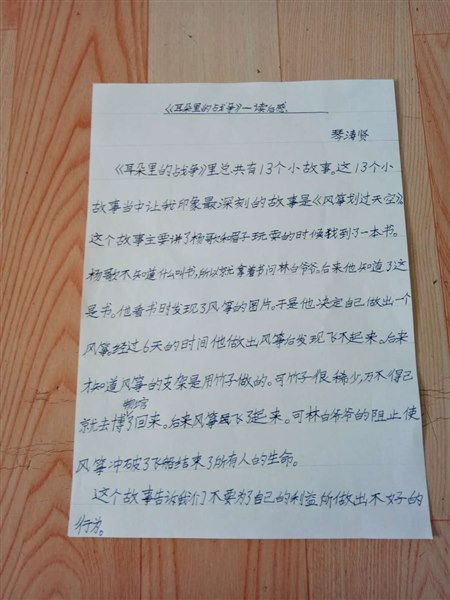 《耳朵里的战争》—读后感
琴涛贤
《耳朵里的战争》里总共有13个小故事。这13个小
故事当中让我印象最深刻的故事是《风筝划过天空》
这个故事主要讲了杨歌和眉子玩耍的时候找到了一本书。
杨歌不知道什么叫书,所以就拿着书问林白爷爷。后来他知道了这
是书。他看书时发现了风筝的图片。于是他决定自己做出一个
风筝。经过6天的时间他做出风筝后发现飞不起来。后来
才知道风筝的支架是用竹子做的。可竹子很稀少,万不得已
就去博物馆了回来。后来风筝飞了起来。可林白爷爷的阻止使
风筝冲破了飞船结束了所有人的生命。
这个故事告诉我们不要为了自己的利益所做出不好的
行为。